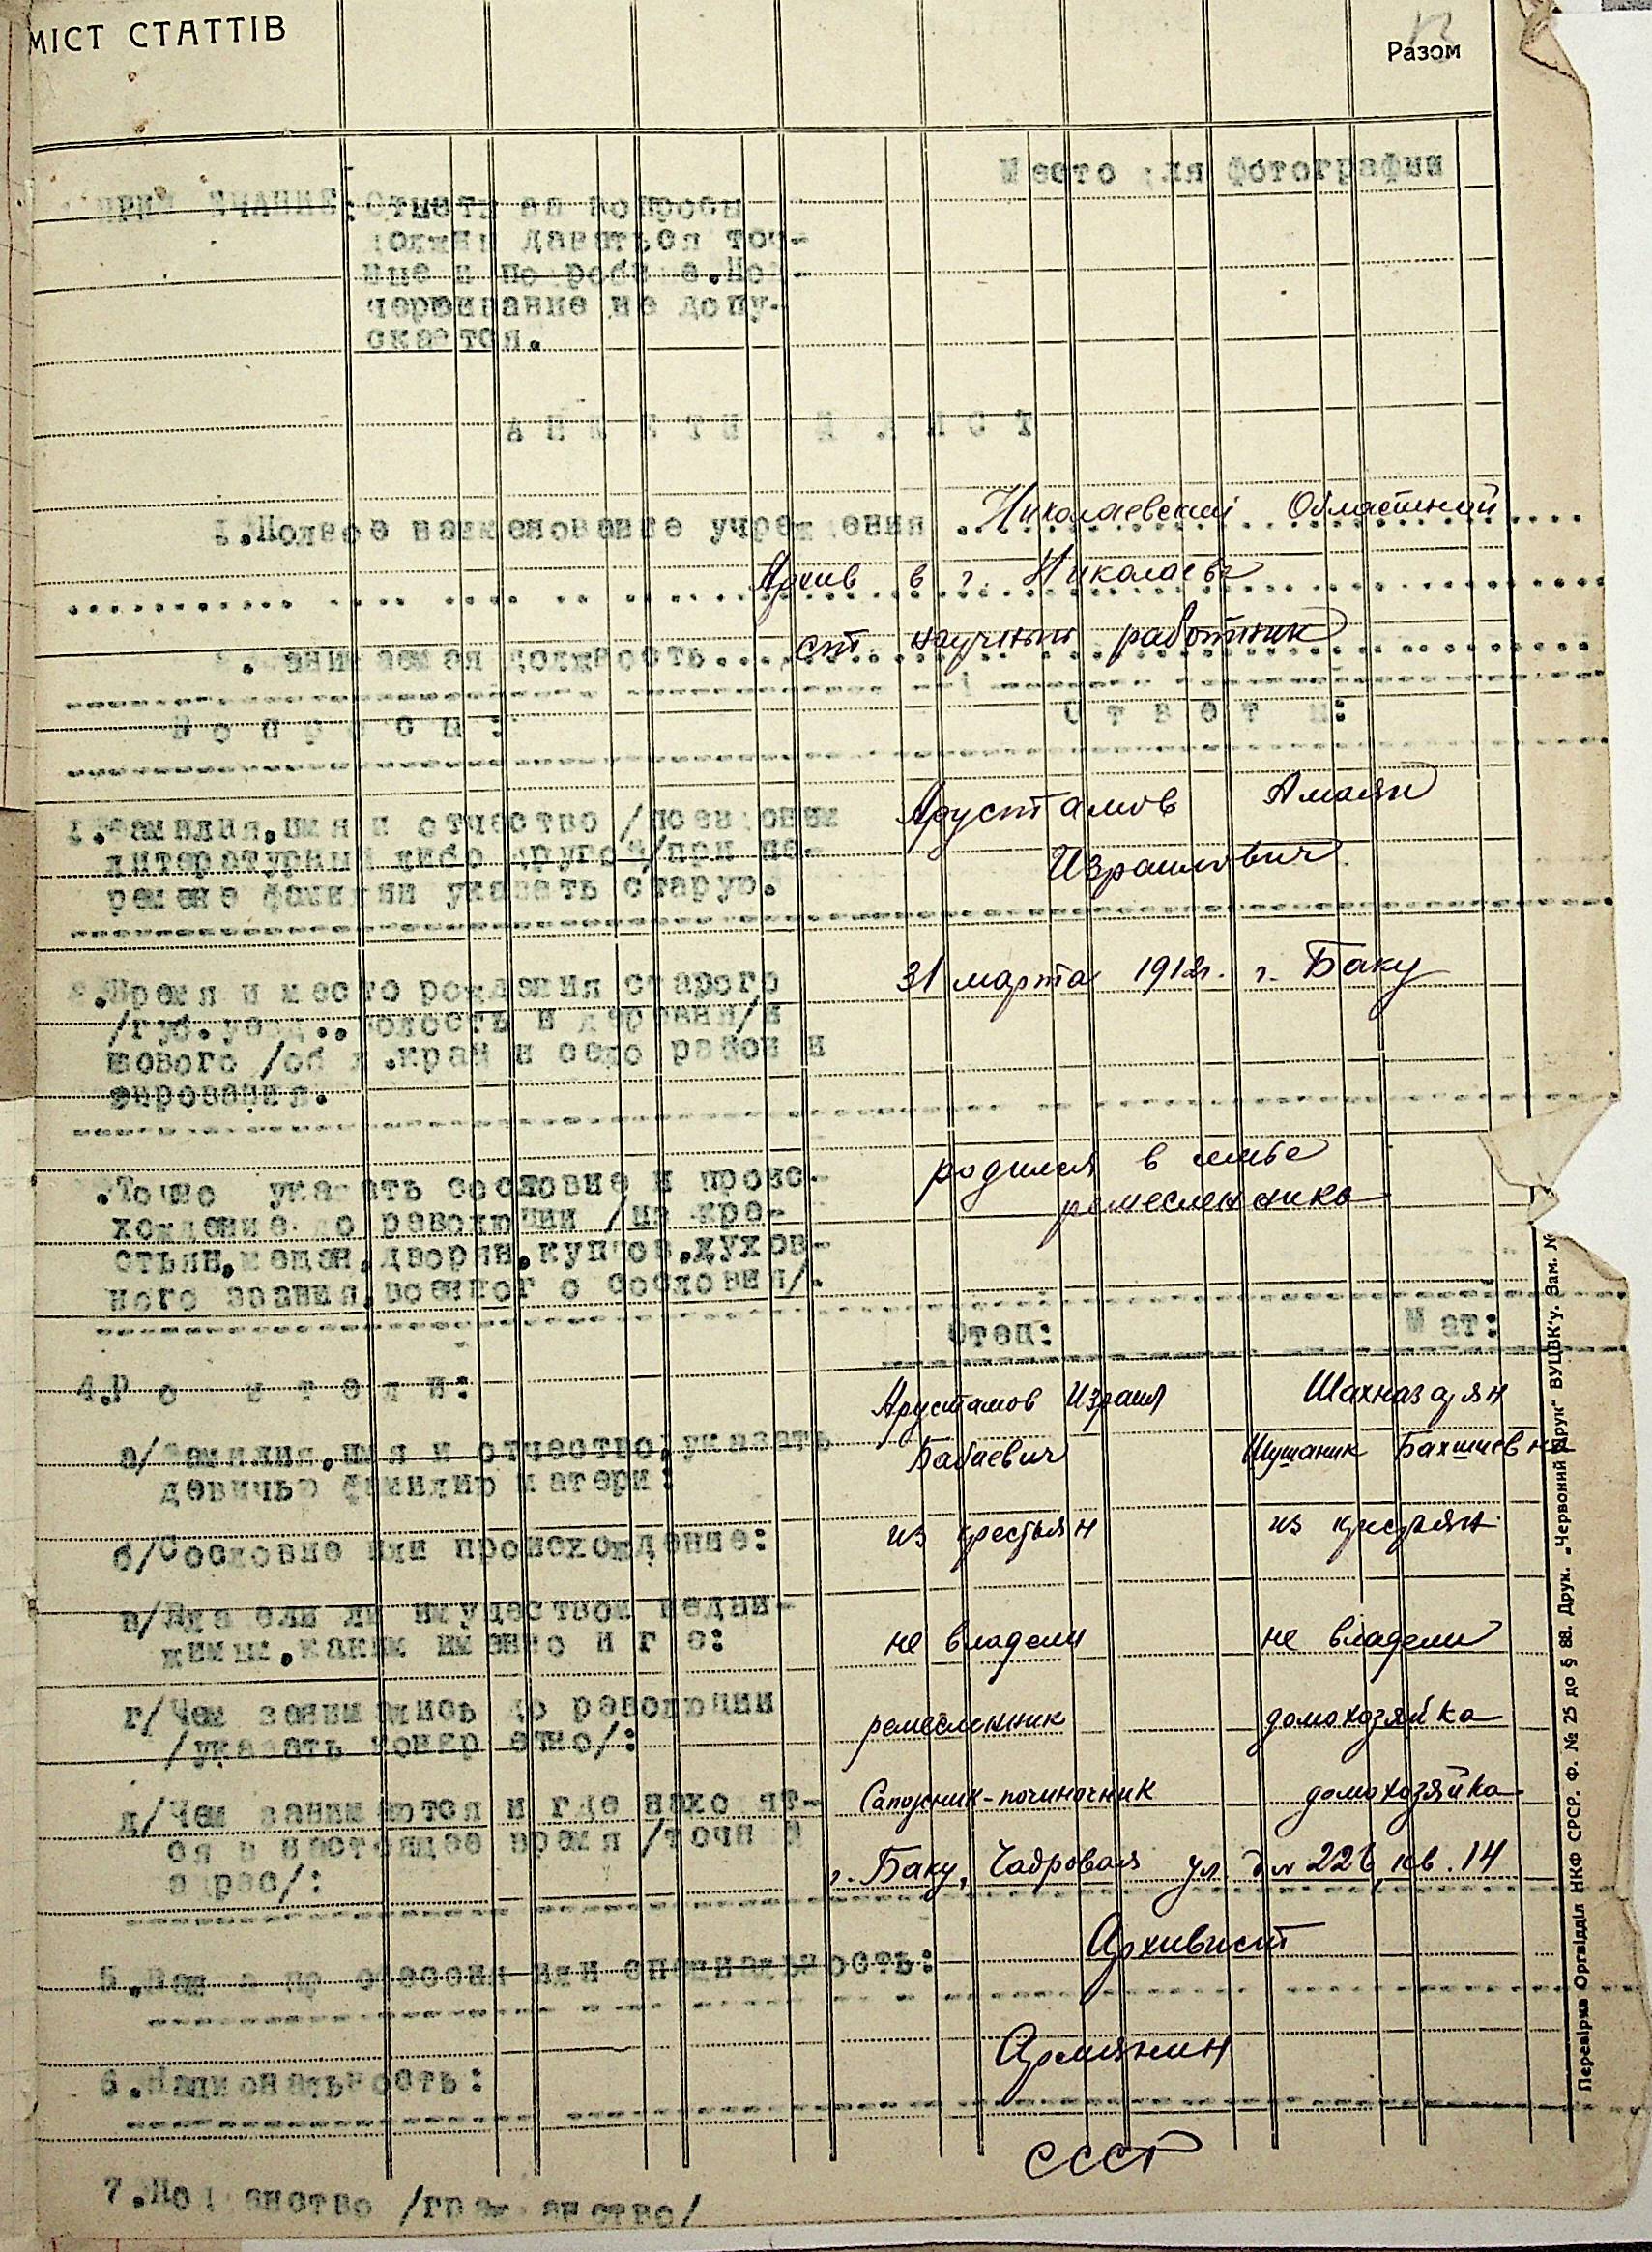 МІСТ СТАТТІВ
Разом
Место для фотографии
ПРИМЕЧАНИЕ: Ответы на вопросы
должны даваться точ-
ные и по
черкивание не допу-
скается.
АНКЕТНЫЙ ЛИСТ
1.Полное наименование учреждения Николаевский Областной
Архив в г. Николаеве
2.Занимаемая должность ст. научный работник
Вопросы:
Ответы:
1.Фамилия,имя и отчество /псевдоним
литературный либо другой/при пе-
ремене фамилии указать старую.
Арустамов Амаяк
Израилович
2.Время и место рождения старого
/губ.уезд.,волость и деревня/и
нового /обл.край и село район и
31 марта 1912г. г. Баку
3.Точно указать сословие и проис-
хождение до революции /из кре-
стьян,мещан,дворян,купцов,духов-
ного звания,военного сословия/.
родился в семье
ремесленника
Отец:
Мать:
4.Родители:
а/Фамилия,имя и отчество,указать
девичью фамилию матери:
Арустамов Израил
Бабаевич
Шахназарян
Шушаник Бахшиевна
б/Сословие или происхождение:
из крестьян
из крестьян
в/Владели ли имуществом недви-
жимым,каким именно и где:
не владели
не владели
г/Чем занимались до революции
/указать конкретно/:
ремесленник
домохозяйка
д/Чем занимаются и где находят-
ся в настоящее время /точный
адрес/:
Сапожник-починочник
домохозяйка
г. Баку, Чадровая ул. д № 226, кв. 14
5.Ваша профессия или специальность:
Архивист
6.Национальность:
Армянин
7.Подданство /гражданство/
СССР
Перевірка Оргвідділ НКФ СРСР. Ф. № 25 до § 88. Друк. „Червоний Друк" ВУЦВК'у. Зам. №